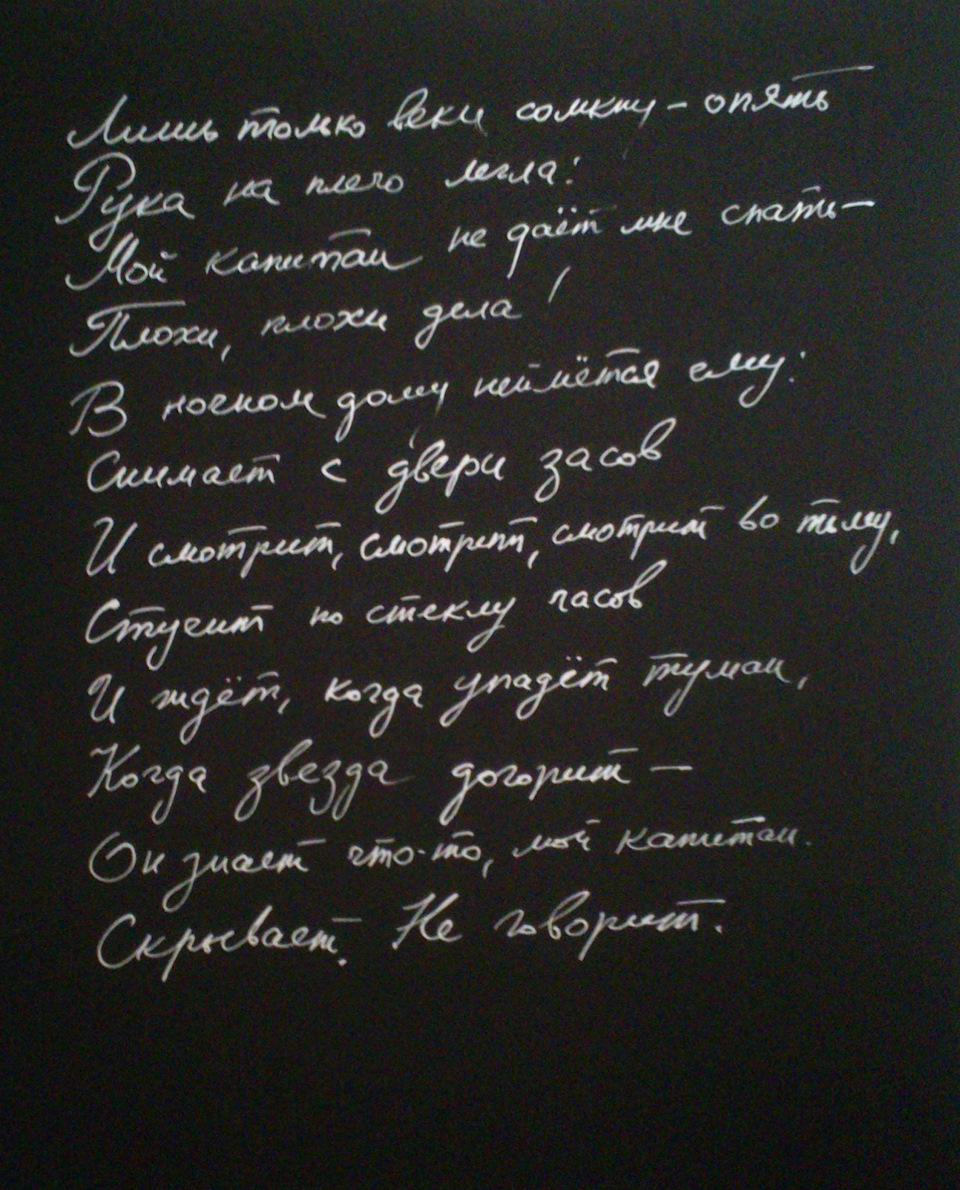 Лишь только веки сомкну – опять
Рука на плечо легла:
Мой капитан не даёт мне спать –
Плохи, плохи дела!
В ночном дому неймётся ему:
Снимает с двери засов
И смотрит, смотрит, смотрит во тьму,
Стучит по стеклу часов
И ждёт, когда упадёт туман,
Когда звезда догорит –
Он знает что-то, мой капитан.
Скрывает. Не говорит.